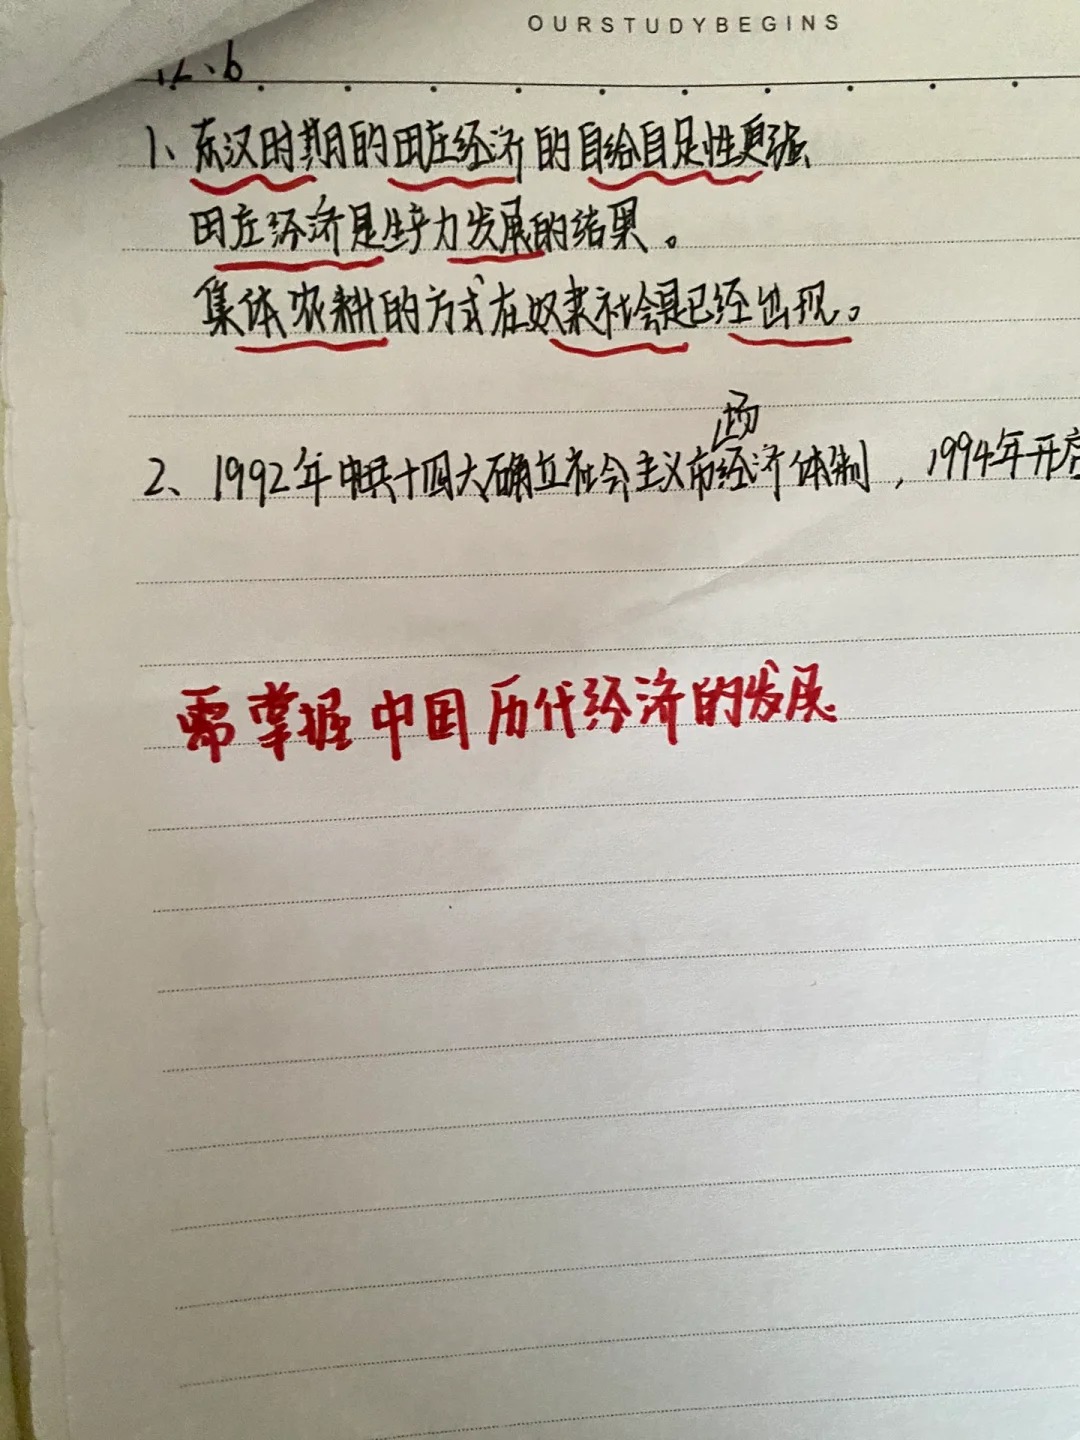 OURSTUDYBEGINS
12、6
1、东汉时期的田庄经济的自给自足性更强
田庄经济是生产力发展的结果。
集体农耕的方式在奴隶社会是已经出现。
场
2、1992年中共十四大确立社会主义市经济体制，1994年开启
需掌握中国历代经济的发展